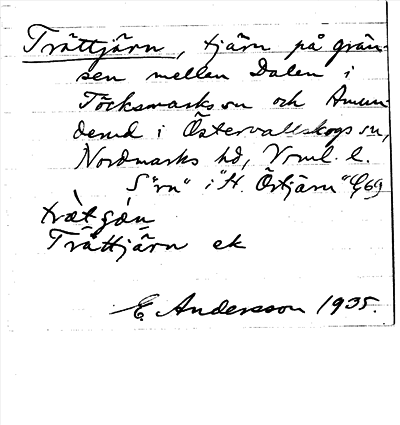 Trättjärn, tjärn på grän-
sen mellan Dalen i
Töcksmarks sn och Amun-
derud i Östervallskogs sn,
Nordmarks hd, Vrml. l.
S "rn" i "H. Örtjärn" G69
trætgǿn
Trättjärn ek
E. Andersson 1935.